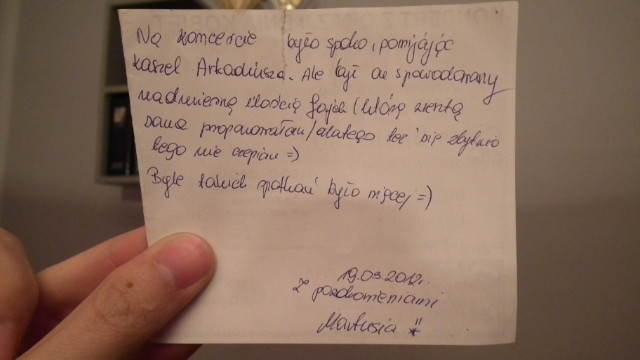 Na koncercie było spoko, pomijając
kaszel Arkadiusza. Ale był on spowodowany
nadmierną ilością fajek (którą zresztą
sama proponowałam) dlatego też się zbytnio
tego nie czepiam =)
Byle takich spotkań było więcej =)
19.03.2012r.
Z pozdrowieniami
Martusia